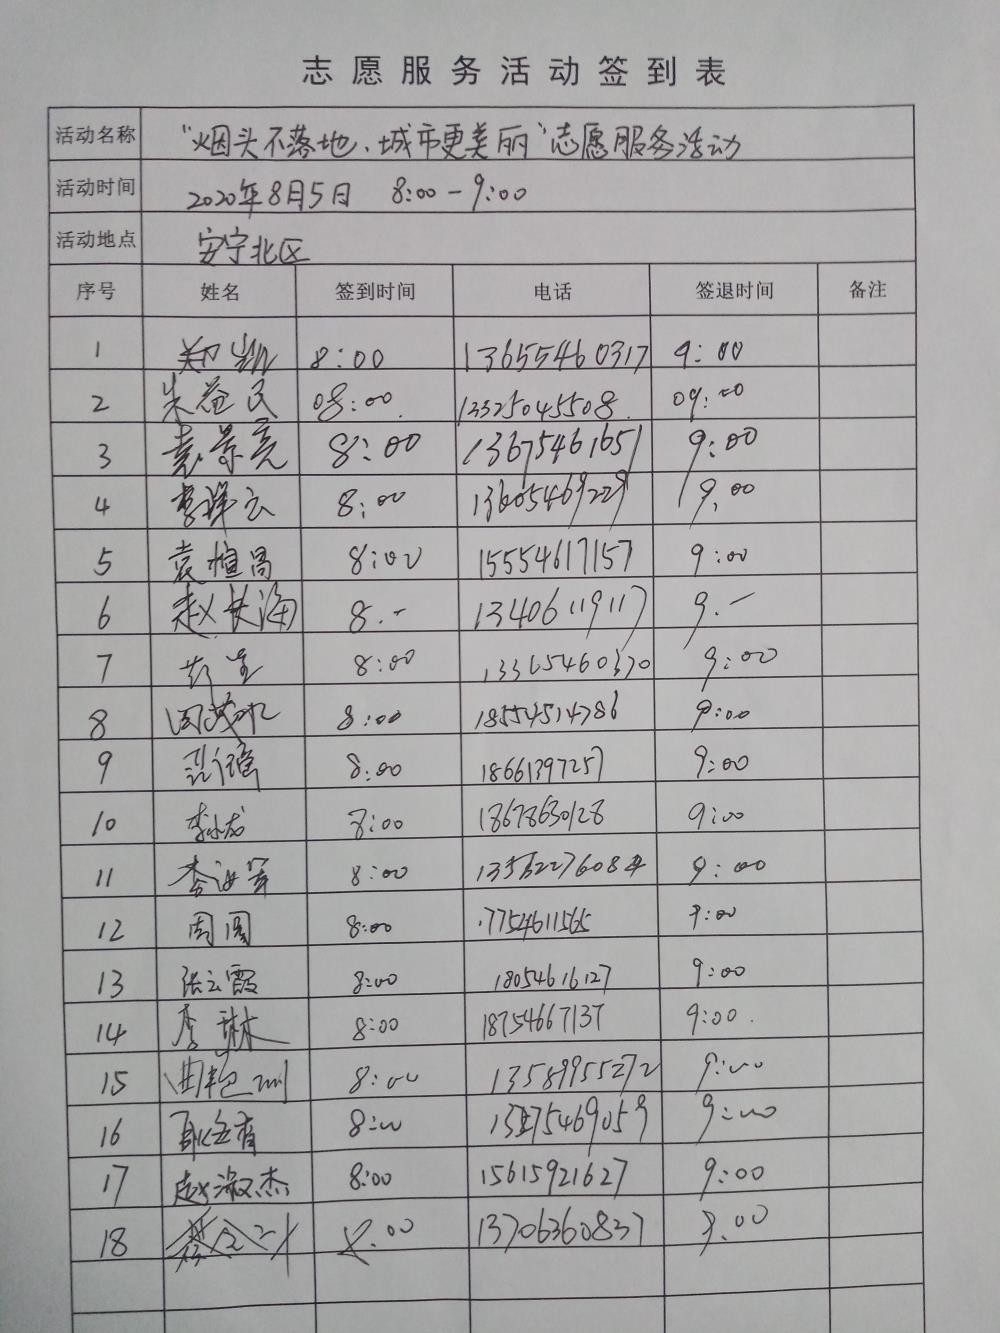 志愿服务活动签到表
活动名称 "烟头不落地、城市更美丽"志愿服务活动
活动时间 2020年8月5日 8:00-9:00
活动地点 安宁北区
序号 姓名 签到时间 电话 签退时间 备注
1 郑凯 8:00 13655460317 9:00
2 朱益民 08:00 13325045508 09:00
3 袁景亮 8:00 13675461651 9:00
4 8:00 13605469229 9:00
5 袁恒昌 8:00 15554617157 9:00
6 赵长海 8.- 13406119117 9.-
7 彭 8:00 13365460370 9:00
8 周 8:00 18554514786 9:00
9 8:00 18661397257 9:00
10 李小龙 8:00 18678630128 9:00
11 李海军 8:00 13562276084 9:00
12 周圆 8:00 17754611565 9:00
13 张云霞 8:00 18054616127 9:00
14 李琳 8:00 18754667137 9:00
15 曲艳 8:00 13589955272 9:00
16 8:00 9:00
17 赵淑杰 8:00 15615921627 9:00
18 8:00 13706360837 9:00